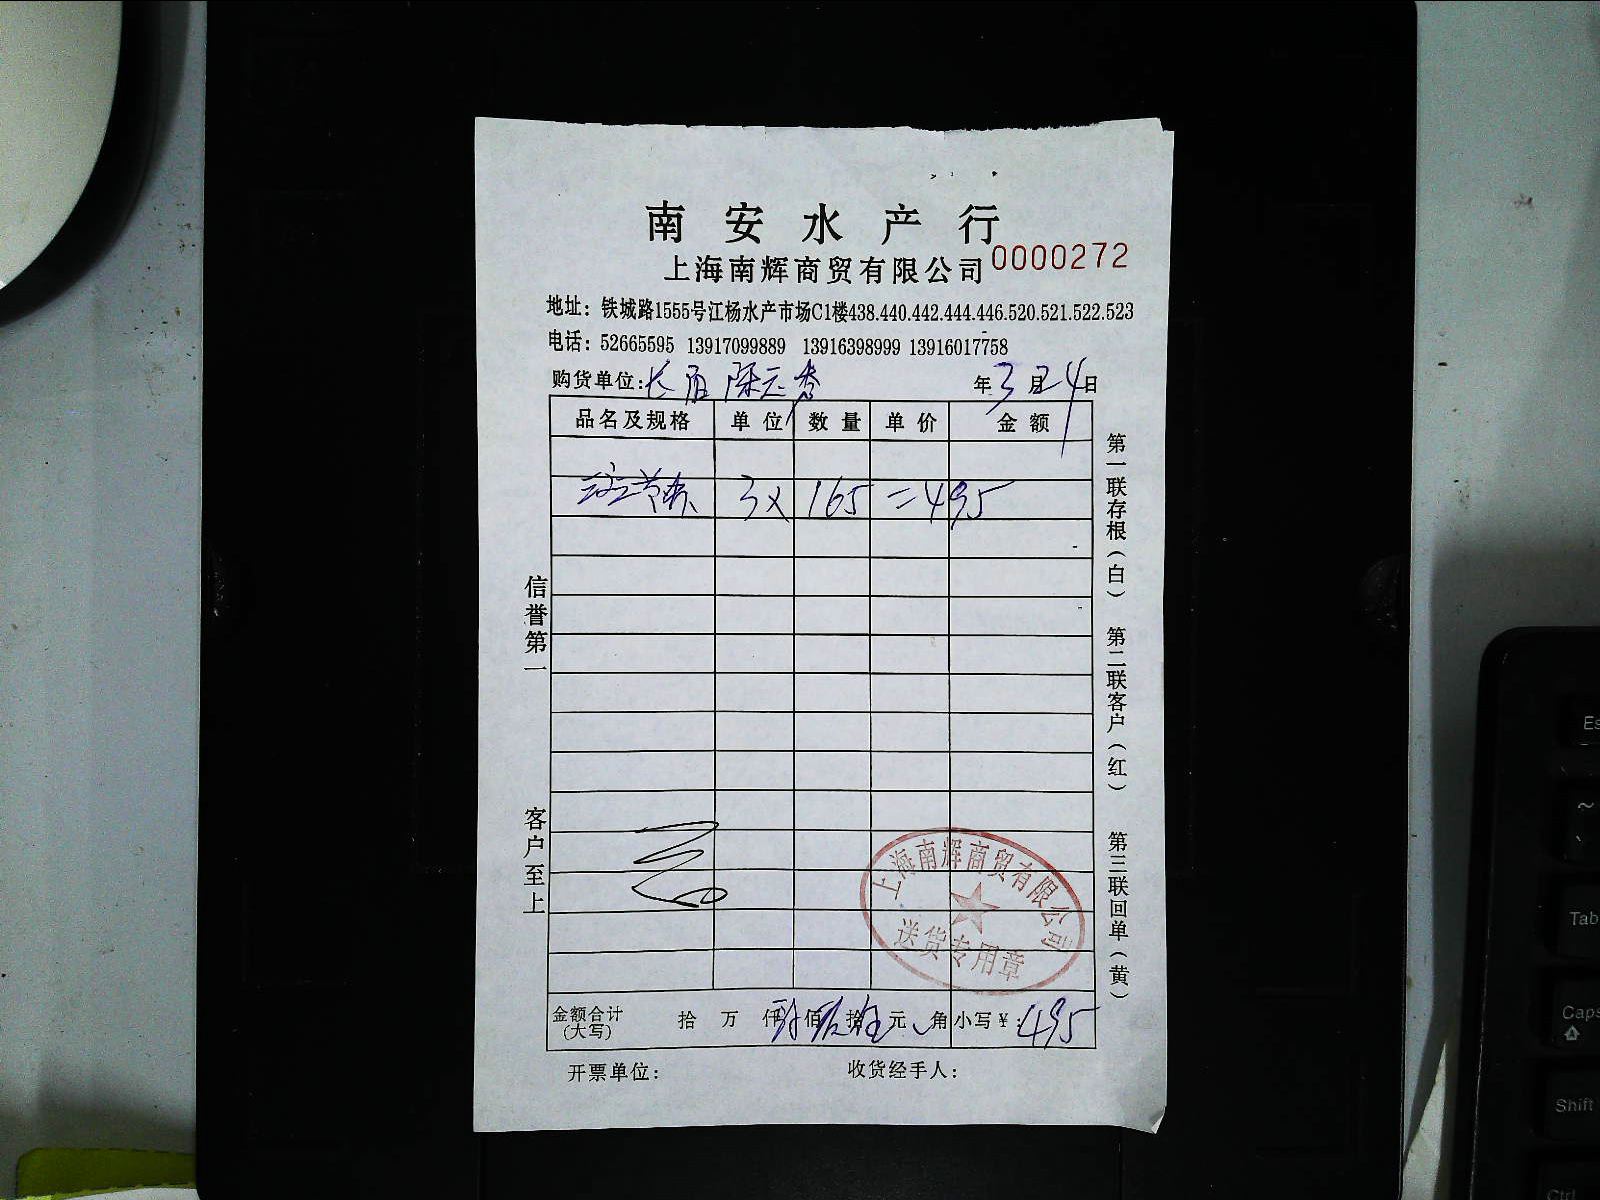 南安水产行
上海南辉商贸有限公司 0000272
地址：铁城路1555号江杨水产市场C1楼438.440.442.444.446.520.521.522.523
电话：52665595 13917099889 13916398999 13916017758
购货单位： 年3月24日
品名及规格 单位 数量 单价 金额
3× 165 =495
信誉第一
客户至上
第一联存根（白） 第二联客户（红） 第三联回单（黄）
上海南辉商贸有限公司
送货专用章
金额合计（大写） 拾 万 仟 佰 拾 元 角 小写￥：495
开票单位： 收货经手人：
Es
~
Tab
Caps
Shift
Ctrl